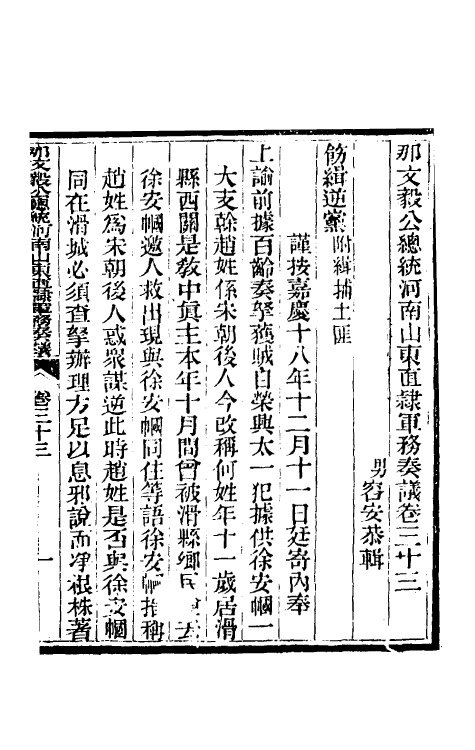 那文毅公總統河南山東直隷軍務奏議卷三十三
男容安恭輯
飭緝逆黨附緝捕土匪
謹按嘉慶十八年十二月十一日廷寄內奉
上諭前據百齡奏拏獲賊白榮興太一犯據供徐安幗一
大支幹趙姓係宋朝後人今改稱何姓年十一歲居滑
縣西關是敎中眞主本年十月間曾被滑縣鄉民
徐安幗邀人救出現與徐安幗同住等語徐安幗推稱
趙姓爲宋朝後人惑衆謀逆此時趙姓是否與徐安幗
同在滑城必須查拏辦理方足以息邪說而凈根株著
那文毅公總統河南山東直隷軍務奏議
卷三十三
一